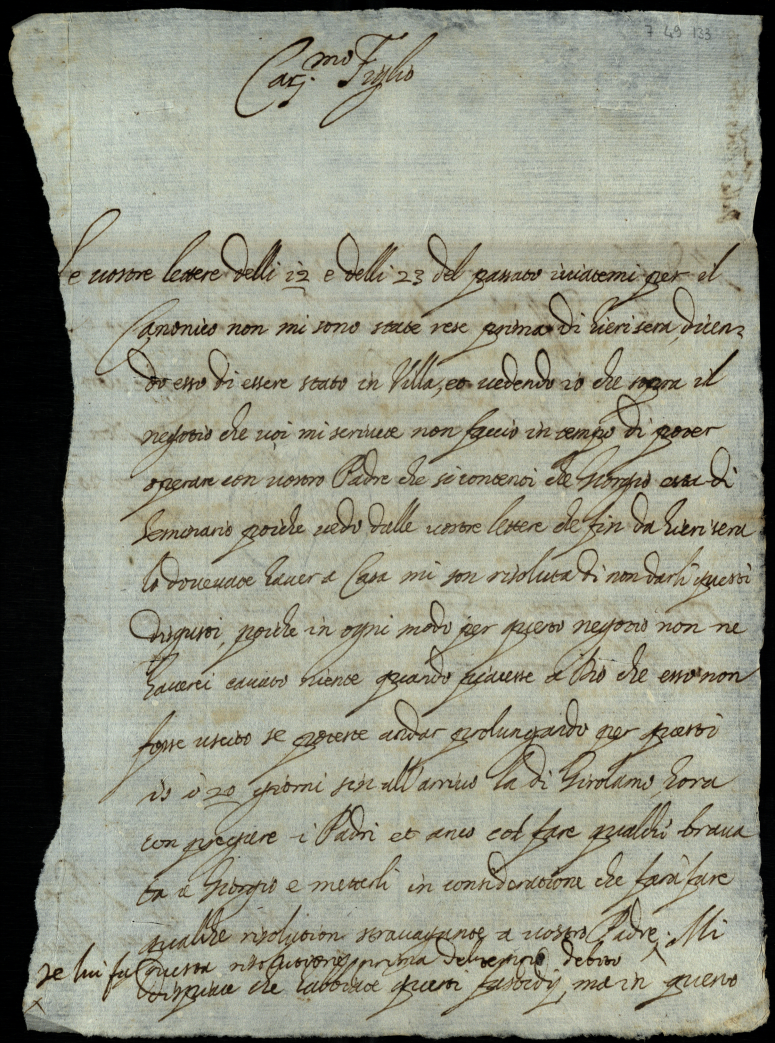 7 49 133
Car.mo Figlio
Le vostre lettere delli 12 e delli 23 del passato inviatemi per il
Canonico non mi sono state rese prima di hieri sera, dicen-
do esso di essere stato in Villa, et vedendo io che sopra il
negotio che voi mi scrivete non faccio in tempo di poter
operare con vostro Padre che si contenti che Giorgio esca di
Seminario poiche vedo dalle vostre lettere che fin da hieri sera
lo dovevate haver a Casa mi son risoluta di non darli questi
disgusti, poiche in ogni modo per questo negotio non ne
haverei cavato niente quando piacesse a Dio che esso non
fosse uscito se poteste andar prolungando per questi
15 ò 20 giorni sin all'arrivo la di Girolamo hora
con pregare i Padri et anco col fare qualche brava
ta a Giorgio e metterli in consideratione che farà fare
qualche risolution stravagante a vostro Padre. Mi
se lui fa questa risolutione prima del tempo debito
dispiace che habbiate questi fastidij, ma in questo